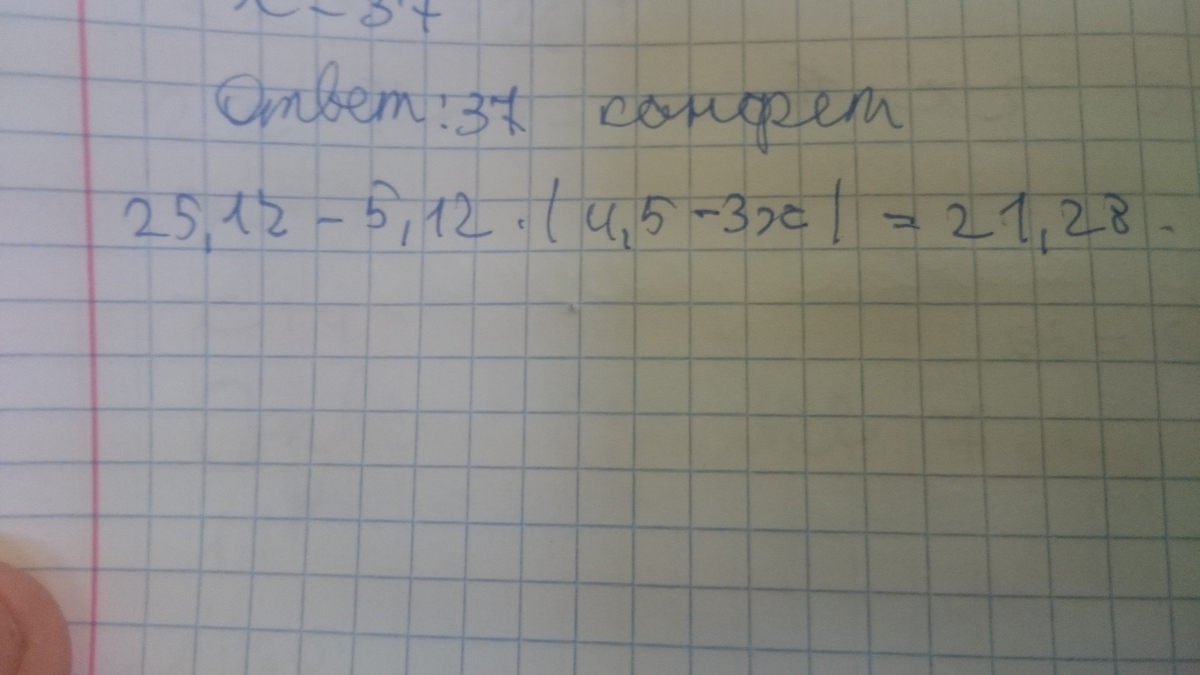 x = 37
Ответ: 37 конфет
25,12 - 5,12 · | 4,5 - 3x | = 21,28.